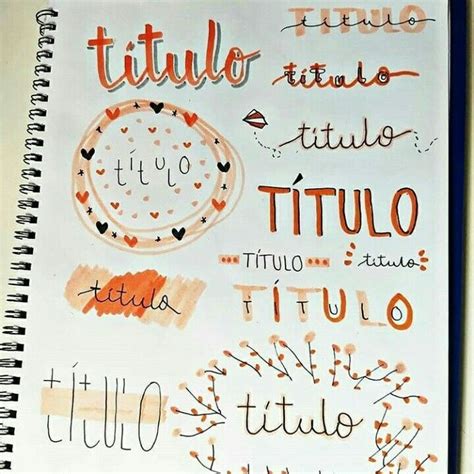 título
TÍTULO
título
título
título
tÍtULO
TÍTULO
TÍTULO
título
título
TÍTULO
TÍTULO
tÍtULO
título